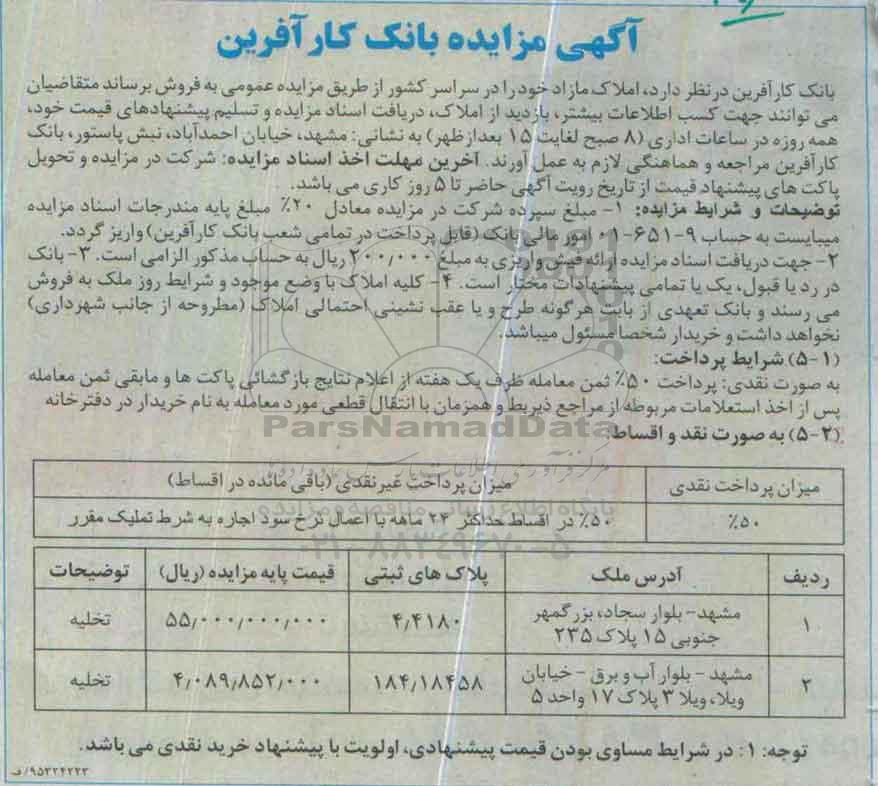 آگهی مزایده بانک کارآفرین
بانک کارآفرین درنظر دارد، املاک مازاد خود را در سراسر کشور از طریق مزایده عمومی به فروش برساند متقاضیان
می توانند جهت کسب اطلاعات بیشتر، بازدید از املاک، دریافت اسناد مزایده و تسلیم پیشنهادهای قیمت خود،
همه روزه در ساعات اداری (۸ صبح لغایت ۱۵ بعدازظهر) به نشانی: مشهد، خیابان احمدآباد، نبش پاستور، بانک
کارآفرین مراجعه و هماهنگی لازم به عمل آورند. آخرین مهلت اخذ اسناد مزایده: شرکت در مزایده و تحویل
پاکت های پیشنهاد قیمت از تاریخ رویت آگهی حاضر تا ۵ روز کاری می باشد.
توضیحات و شرایط مزایده: ۱- مبلغ سپرده شرکت در مزایده معادل ۲۰٪ مبلغ پایه مندرجات اسناد مزایده
میبایست به حساب ۹-۶۵۱-۰۱ امور مالی بانک (قابل پرداخت در تمامی شعب بانک کارآفرین) واریز گردد.
۲- جهت دریافت اسناد مزایده ارائه فیش واریزی به مبلغ ۲۰۰,۰۰۰ ریال به حساب مذکور الزامی است. ۳- بانک
در رد یا قبول، یک یا تمامی پیشنهادات مختار است. ۴- کلیه املاک با وضع موجود و شرایط روز ملک به فروش
می رسند و بانک تعهدی از بابت هرگونه طرح و یا عقب نشینی احتمالی املاک (مطروحه از جانب شهرداری)
نخواهد داشت و خریدار شخصا مسئول میباشد.
(۵-۱) شرایط پرداخت:
به صورت نقدی: پرداخت ۵۰٪ ثمن معامله ظرف یک هفته از اعلام نتایج بازگشائی پاکت ها و مابقی ثمن معامله
پس از اخذ استعلامات مربوطه از مراجع ذیربط و همزمان با انتقال قطعی مورد معامله به نام خریدار در دفترخانه
ParsNamadData
(۵-۲) به صورت نقد و اقساط:
میزان پرداخت نقدی میزان پرداخت غیرنقدی (باقی مانده در اقساط)
پایگاه اطلاع رسانی مناقصه و مزایده
۵۰٪ ۵۰٪ در اقساط حداکثر ۲۴ ماهه با اعمال نرخ سود اجاره به شرط تملیک مقرر
۰۲۱-۸۸۳۴۹۶۷۰-۵
ردیف آدرس ملک پلاک های ثبتی قیمت پایه مزایده (ریال) توضیحات
۱ مشهد- بلوار سجاد، بزرگمهر جنوبی ۱۵ پلاک ۲۳۵ ۴,۴۱۸۰ ۵۵,۰۰۰,۰۰۰,۰۰۰ تخلیه
۲ مشهد - بلوار آب و برق - خیابان ویلا، ویلا ۳ پلاک ۱۷ واحد ۵ ۱۸۴,۱۸۴۵۸ ۴,۰۸۹,۸۵۲,۰۰۰ تخلیه
توجه: ۱: در شرایط مساوی بودن قیمت پیشنهادی، اولویت با پیشنهاد خرید نقدی می باشد.
۹۵۳۲۴۲۲۳/ف